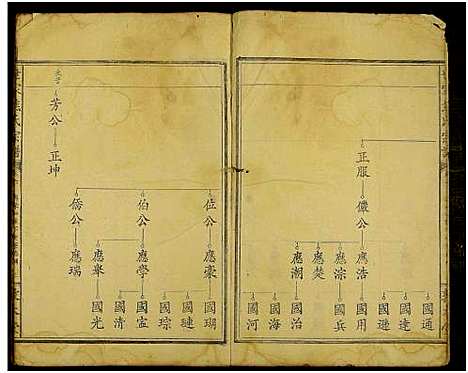 正服
儼公
應浩
應淙
應楚
應潮
國通
國達
國遜
國用
國兵
國治
國海
國河
芳公
正坤
位公
伯公
僑公
應豪
應學
應舉
應瑞
國瑚
國璉
國琮
國宣
國清
國光